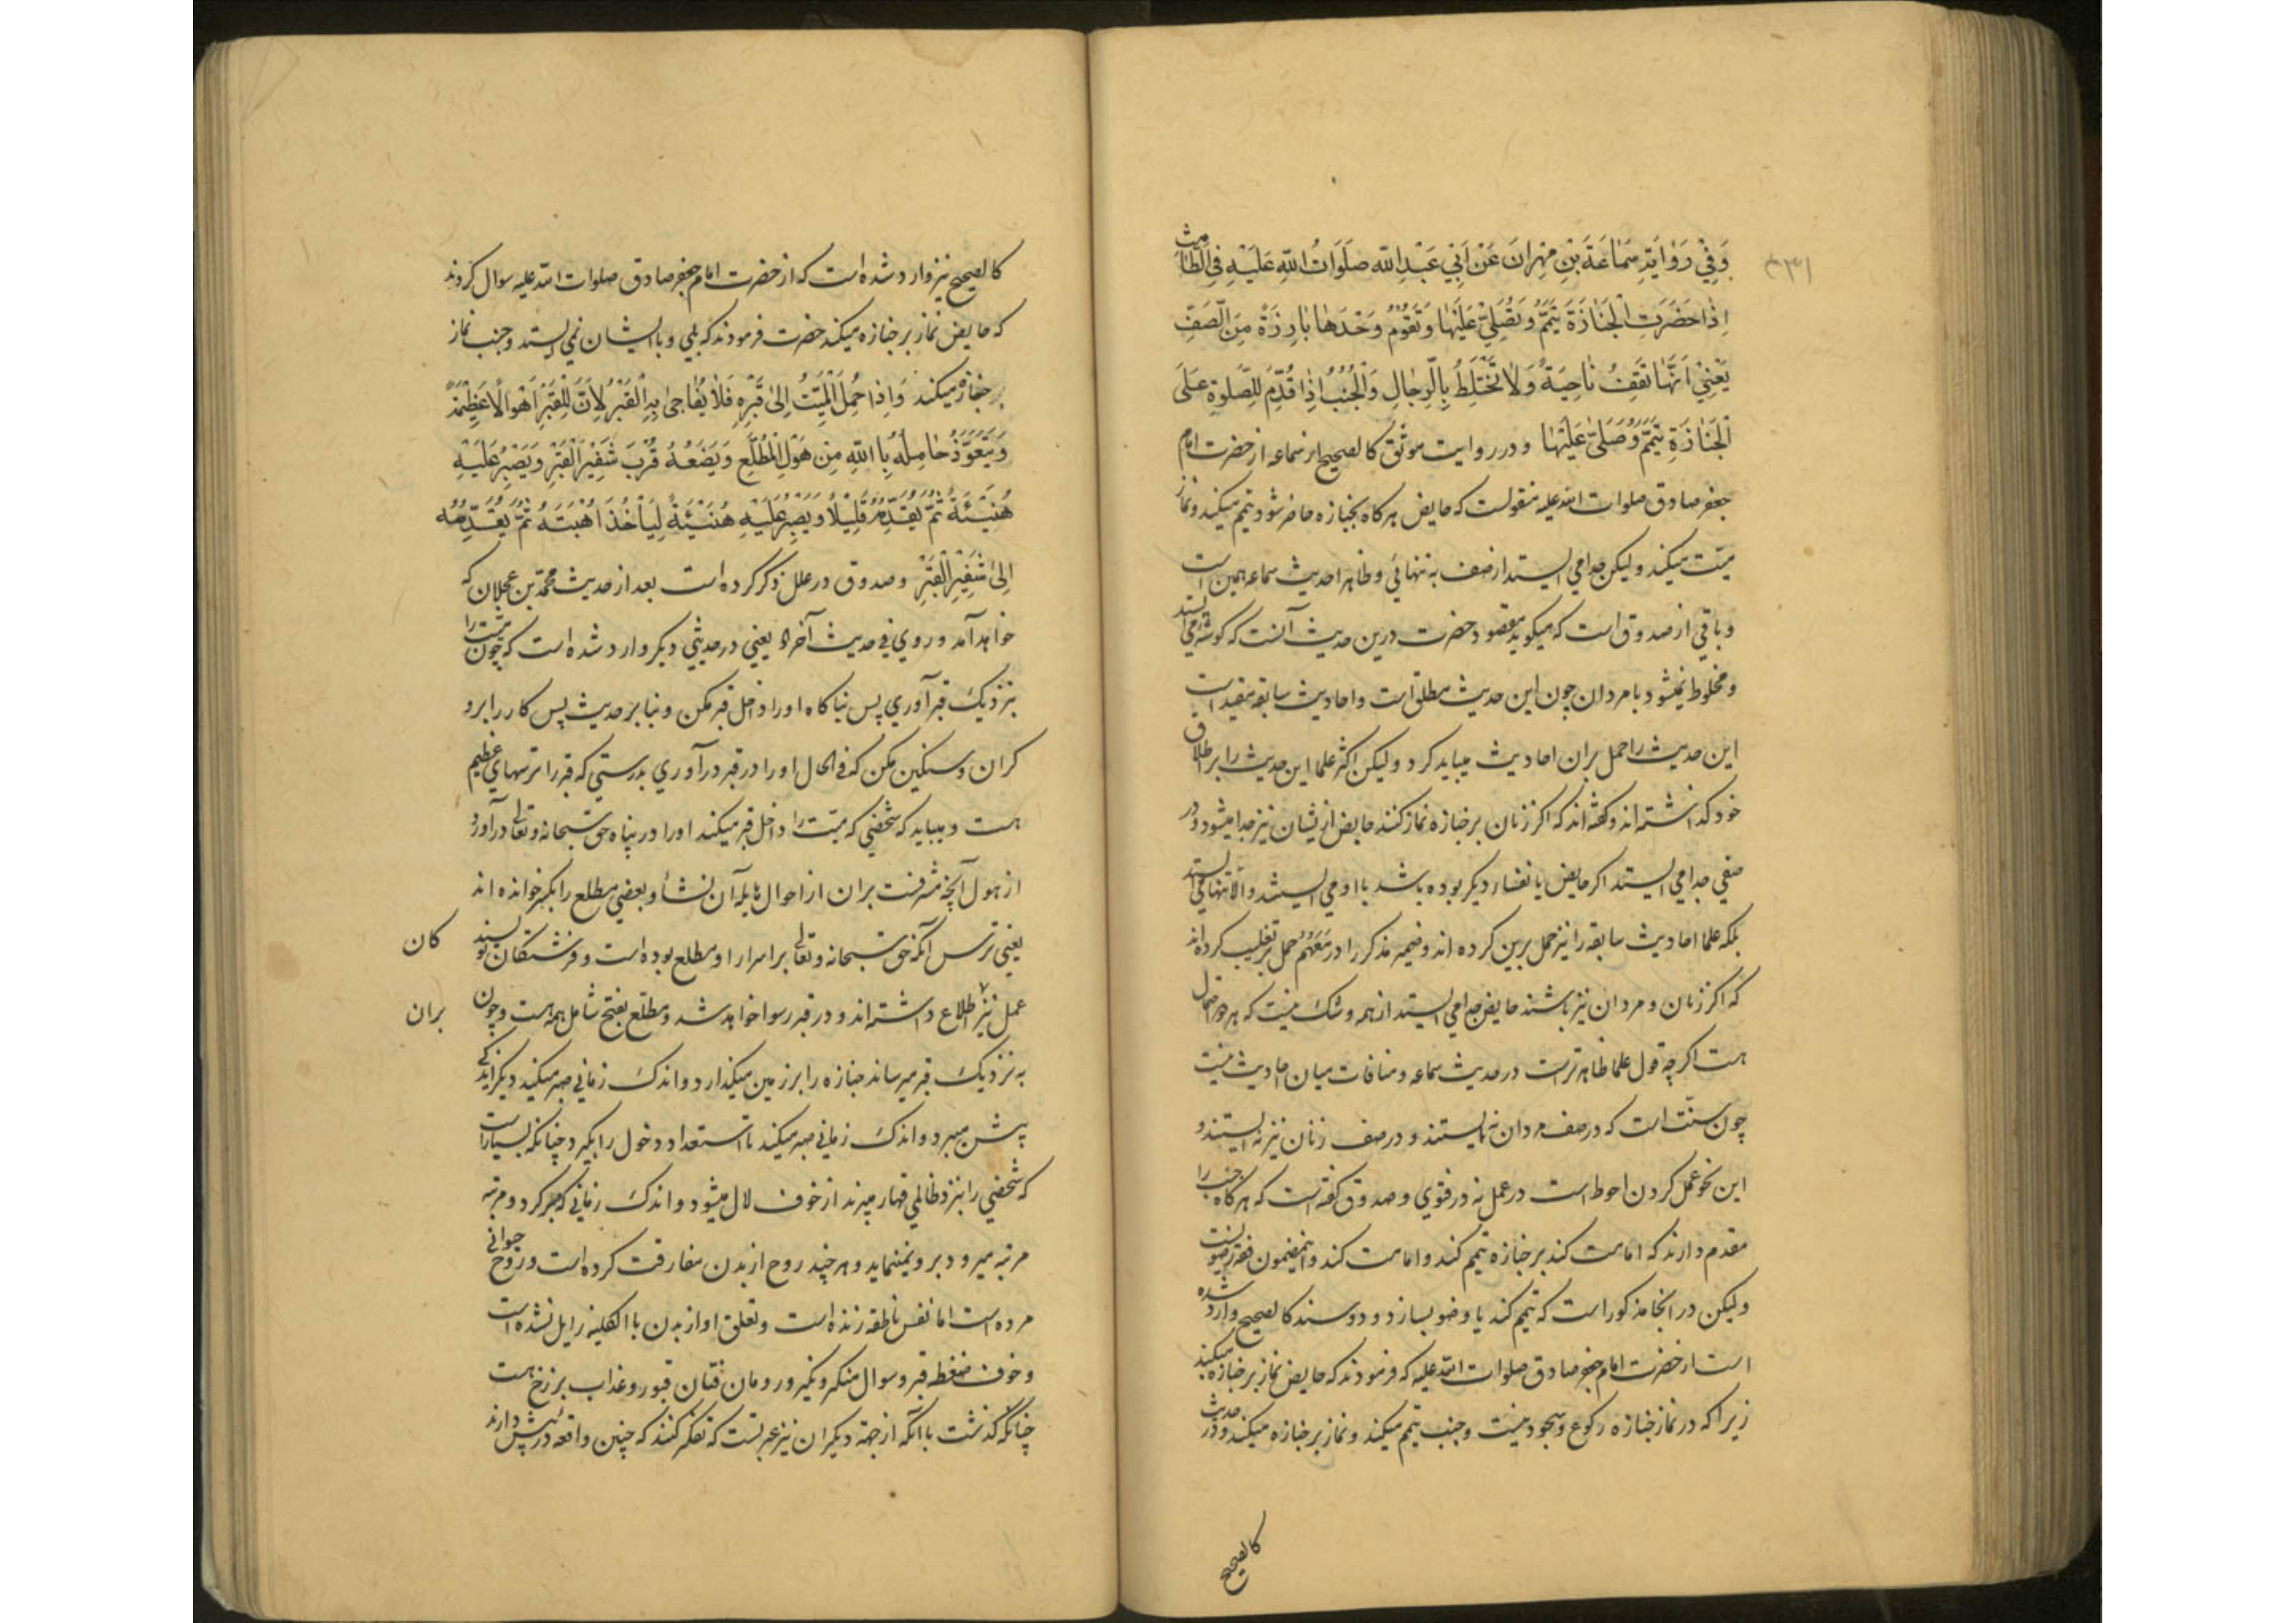 وَفِي رَوٰايَةِ سَمٰاعَةَ بْنِ مِهْرانَ عَنْ اَبِي عَبْدِ اللّه صَلَوَاتُ اللّهِ عَلَيْهِ فِي الطّٰامِث
اِذٰا حَضَرَتِ الْجَنٰازَةَ تَيَمَّمُ وَتُصَلِّي عَلَيْهٰا وَتَقُوْمُ وَحْدَهٰا بٰارِزَةً مِنَ الصَّفِّ
يَعْنِي اَنَّهٰا تَقِفُ نٰاحِيَةً وَلٰا تَخْتَلِطُ بِالرِّجٰالِ وَالْجُنُبُ اِذٰا قُدِّمَ لِلصَّلٰوةِ عَلَى
الْجَنٰازَةِ تَيَمَّمَ وَصَلّٰى عَلَيْهٰا و در روايت موثق كالصحيح از سماعه از حضرت امام
جعفر صادق صلوات الله عليه منقولست كه حايض هر كاه بجنازه حاضر شود تيمم ميكند و نماز
ميّت ميكند و ليكن جدا مي ايستد از صف به تنهائي و ظاهرا حديث سماعه همين است
و باقي از صدوق است كه ميكويد مقصود حضرت درين حديث آنست كه كوشه مي ايستد
و مخلوط نميشود با مردان چون اين حديث مطلق است و احاديث سابقه مقيد است
اين حديث را حمل بران احاديث ميبايد كرد و ليكن اكثر علما اين حديث را بر اطلاق
خود كذاشته اند و كفته اند كه اكر زنان بر جنازه نماز كنند حايض ازيشان نيز جدا ميشود و در
صفي جدا مي ايستد اكر حايض يا نفساء ديكر بوده باشد با او مي ايستد و الا تنها مي ايستد
بلكه علما احاديث سابقه را نيز حمل برين كرده اند و ضمير مذكر را در مَعَهُمْ حمل بر تغليب كرده اند
كه اكر زنان و مردان نيز باشند حايض جدا مي ايستد از همه و شك نيست كه هر دو احتمال
هست اكرچه قول علما ظاهرترست در حديث سماعه و منافات ميان احاديث نيست
چون سنّت است كه در صف مردان نه ايستند و در صف زنان نيز نه ايستند و
اين نحو عمل كردن احوط است در عمل نه در فتوي و صدوق كفته است كه هر كاه جنب را
مقدم دارند كه امامت كند بر جنازه تيمم كند و امامت كند و اينمضمون فقه رضويست
و ليكن در انجا مذكور است كه تيمم كند يا وضو بسازد و دو سند كالصحيح وارد شده
است از حضرت امام جعفر صادق صلوات الله عليه كه فرمودند كه حايض نماز بر جنازه ميكند
زيرا كه در نماز جنازه ركوع و سجود نيست و جنب تيمم ميكند و نماز بر جنازه ميكند و در حديث
كالصحيح
كالصحيح نيز وارد شده است كه از حضرت امام جعفر صادق صلوات الله عليه سوال كردند
كه حايض نماز بر جنازه ميكند حضرت فرمودند كه بلي و با ايشان نمي ايستد و جنب نماز
بر جنازه ميكند وَاِذٰا حُمِلَ الْمَيِّتُ اِلىٰ قَبْرِهِ فَلٰا يُفٰاجىٰ بِهِ الْقَبْرُ لِاَنَّ لِلْقَبْرِ اَهْوٰالاً عَظِيْمَةً
وَيَتَعَوَّذُ حٰامِلُهُ بِاللّهِ مِنْ هَوْلِ الْمُطَّلَعِ وَيَضَعُهُ قُرْبَ شَفِيْرِ الْقَبْرِ وَيَصْبِرُ عَلَيْهِ
هُنَيْئَةً ثُمَّ يُقَدِّمُهُ قَلِيْلًا وَيَصْبِرُ عَلَيْهِ هُنَيْئَةً لِيَأْخُذَ اُهْبَتَهُ ثُمَّ يُقَدِّمُهُ
اِلىٰ شَفِيْرِ الْقَبْرِ و صدوق در علل ذكر كرده است بعد از حديث محمّد بن عجلان كه
خواهد آمد و روي في حديث آخر يعني در حديثي ديكر وارد شده است كه چون ميّت را
بنزديك قبر آوري پس بناكاه او را داخل قبر مكن و بنا بر حديث پس كار را برو
كران و سنكين مكن كه في الحال او را در قبر درآوري بدرستي كه قبر را ترسهاي عظيم
هست و ميبايد كه شخصي كه ميّت را داخل قبر ميكند او را در پناه حق سبحانه و تعالي درآورد
از هول آنچه مشرفست بران از احوال هايله آن نشأ و بعضي مطلع را بكسر خوانده اند
يعني ترس آنكه حق سبحانه و تعالي بر اسرار او مطلع بوده است و فرشتكان نويسند
كان
عمل نيز اطلاع داشته اند و در قبر رسوا خواهد شد و مطلع بفتح شامل همه هست و چون
بران
به نزديك قبر ميرساند جنازه را بر زمين ميكذارد و اندك زماني صبر ميكند ديكر اندكي
پيش ميبرد و اندك زماني صبر ميكند تا استعداد دخول را بكيرد چنانكه بسيار است
كه شخصي را بنزد ظالمي قهار ميبرند از خوف لال ميشود و اندك زماني كه صبر كرد و مرتبه
مرتبه ميرود برو مينمايد و هر چند روح از بدن مفارقت كرده است و روح حيواني
مرده است اما نفس ناطقه زنده است و تعلق او از بدن بالكليه زايل نشده است
و خوف ضغطه قبر و سوال منكر و نكير و رومان فتان قبور و عذاب برزخ هست
چنانكه كذشت با آنكه از جهة ديكران نيز عبرتست كه تفكر كنند كه چنين واقعه در پيش دارند